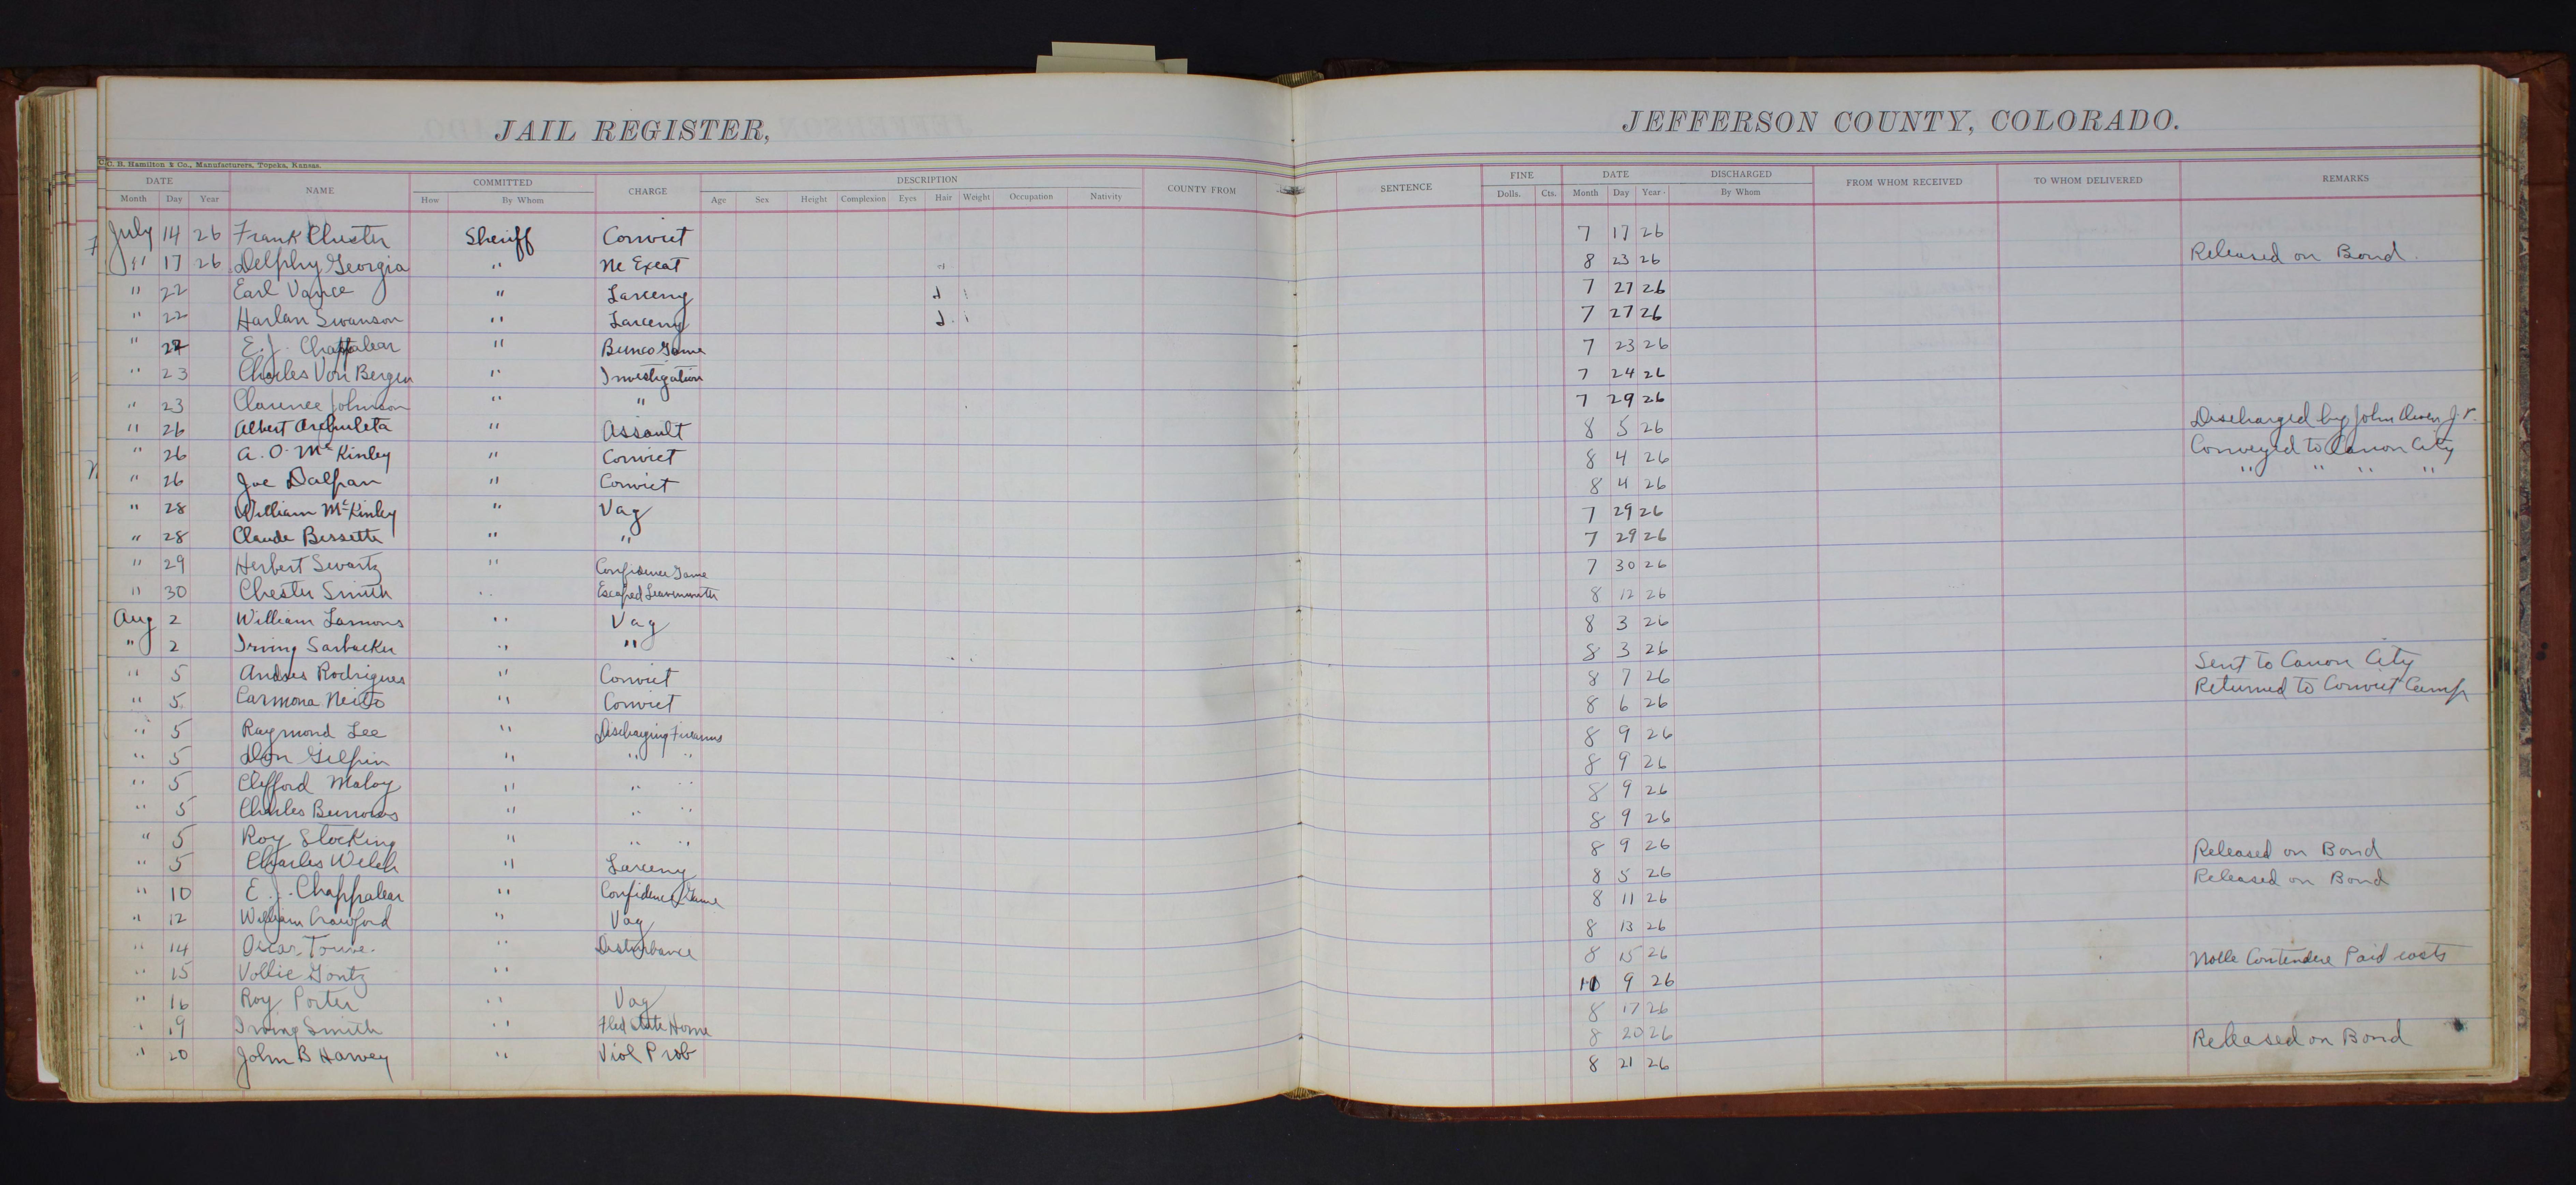 JAIL REGISTER,
JEFFERSON COUNTY, COLORADO.
C. B. Hamilton & Co., Manufacturers, Topeka, Kansas.
DATE NAME COMMITTED CHARGE DESCRIPTION COUNTY FROM SENTENCE FINE DATE DISCHARGED FROM WHOM RECEIVED TO WHOM DELIVERED REMARKS
Month Day Year How By Whom Age Sex Height Complexion Eyes Hair Weight Occupation Nativity Dolls. Cts. Month Day Year By Whom
July 14 26 Frank Chester Sheriff Convict 7 17 26
" 17 26 Delphy Georgia " Ne Exeat 8 23 26 Released on Bond.
" 22 Earl Vance " Larceny 7 27 26
" 22 Harlan Swanson " Larceny 7 27 26
" 22 E. J. Chappalear " Bunco Game 7 23 26
" 23 Charles Von Bergen " Investigation 7 24 26
" 23 Clarence Johnson " " 7 29 26
" 26 Albert Archuleta " Assault 8 5 26 Discharged by John
" 26 A. O. McKinley " Convict 8 4 26 Conveyed to Canon City
" 26 Joe Dalpan " Convict 8 4 26 " " " "
" 28 William McKinley " Vag 7 29 26
" 28 Claude Bessette " " 7 29 26
" 29 Herbert Swartz " Confidence Game 7 30 26
" 30 Chester Smith " Escaped Leavenworth 8 12 26
Aug 2 William Lamons " Vag 8 3 26
" 2 Irving Sarbacker " " 8 3 26
" 5 Andres Rodrigues " Convict 8 7 26 Sent to Canon City
" 5 Carmona Neito " Convict 8 6 26 Returned to Convict Camp
" 5 Raymond Lee " Discharging Firearms 8 9 26
" 5 Don Gilpin " " " 8 9 26
" 5 Clifford Maloy " " " 8 9 26
" 5 Charles Burrows " " " 8 9 26
" 5 Roy Stocking " " " 8 9 26
" 5 Charles Welch " Larceny 8 5 26 Released on Bond
" 10 E. J. Chappalear " Confidence Game 8 11 26 Released on Bond
" 12 William Crawford " Vag 8 13 26
" 14 Oscar Towne. " Disturbance 8 15 26 Nolle Contendere Paid costs
" 15 Vollie Gontz " 9 26
" 16 Roy Porter " Vag 8 17 26
" 19 Irving Smith " Fled State Home 8 20 26
" 20 John B Harvey " Viol Prob 8 21 26 Released on Bond